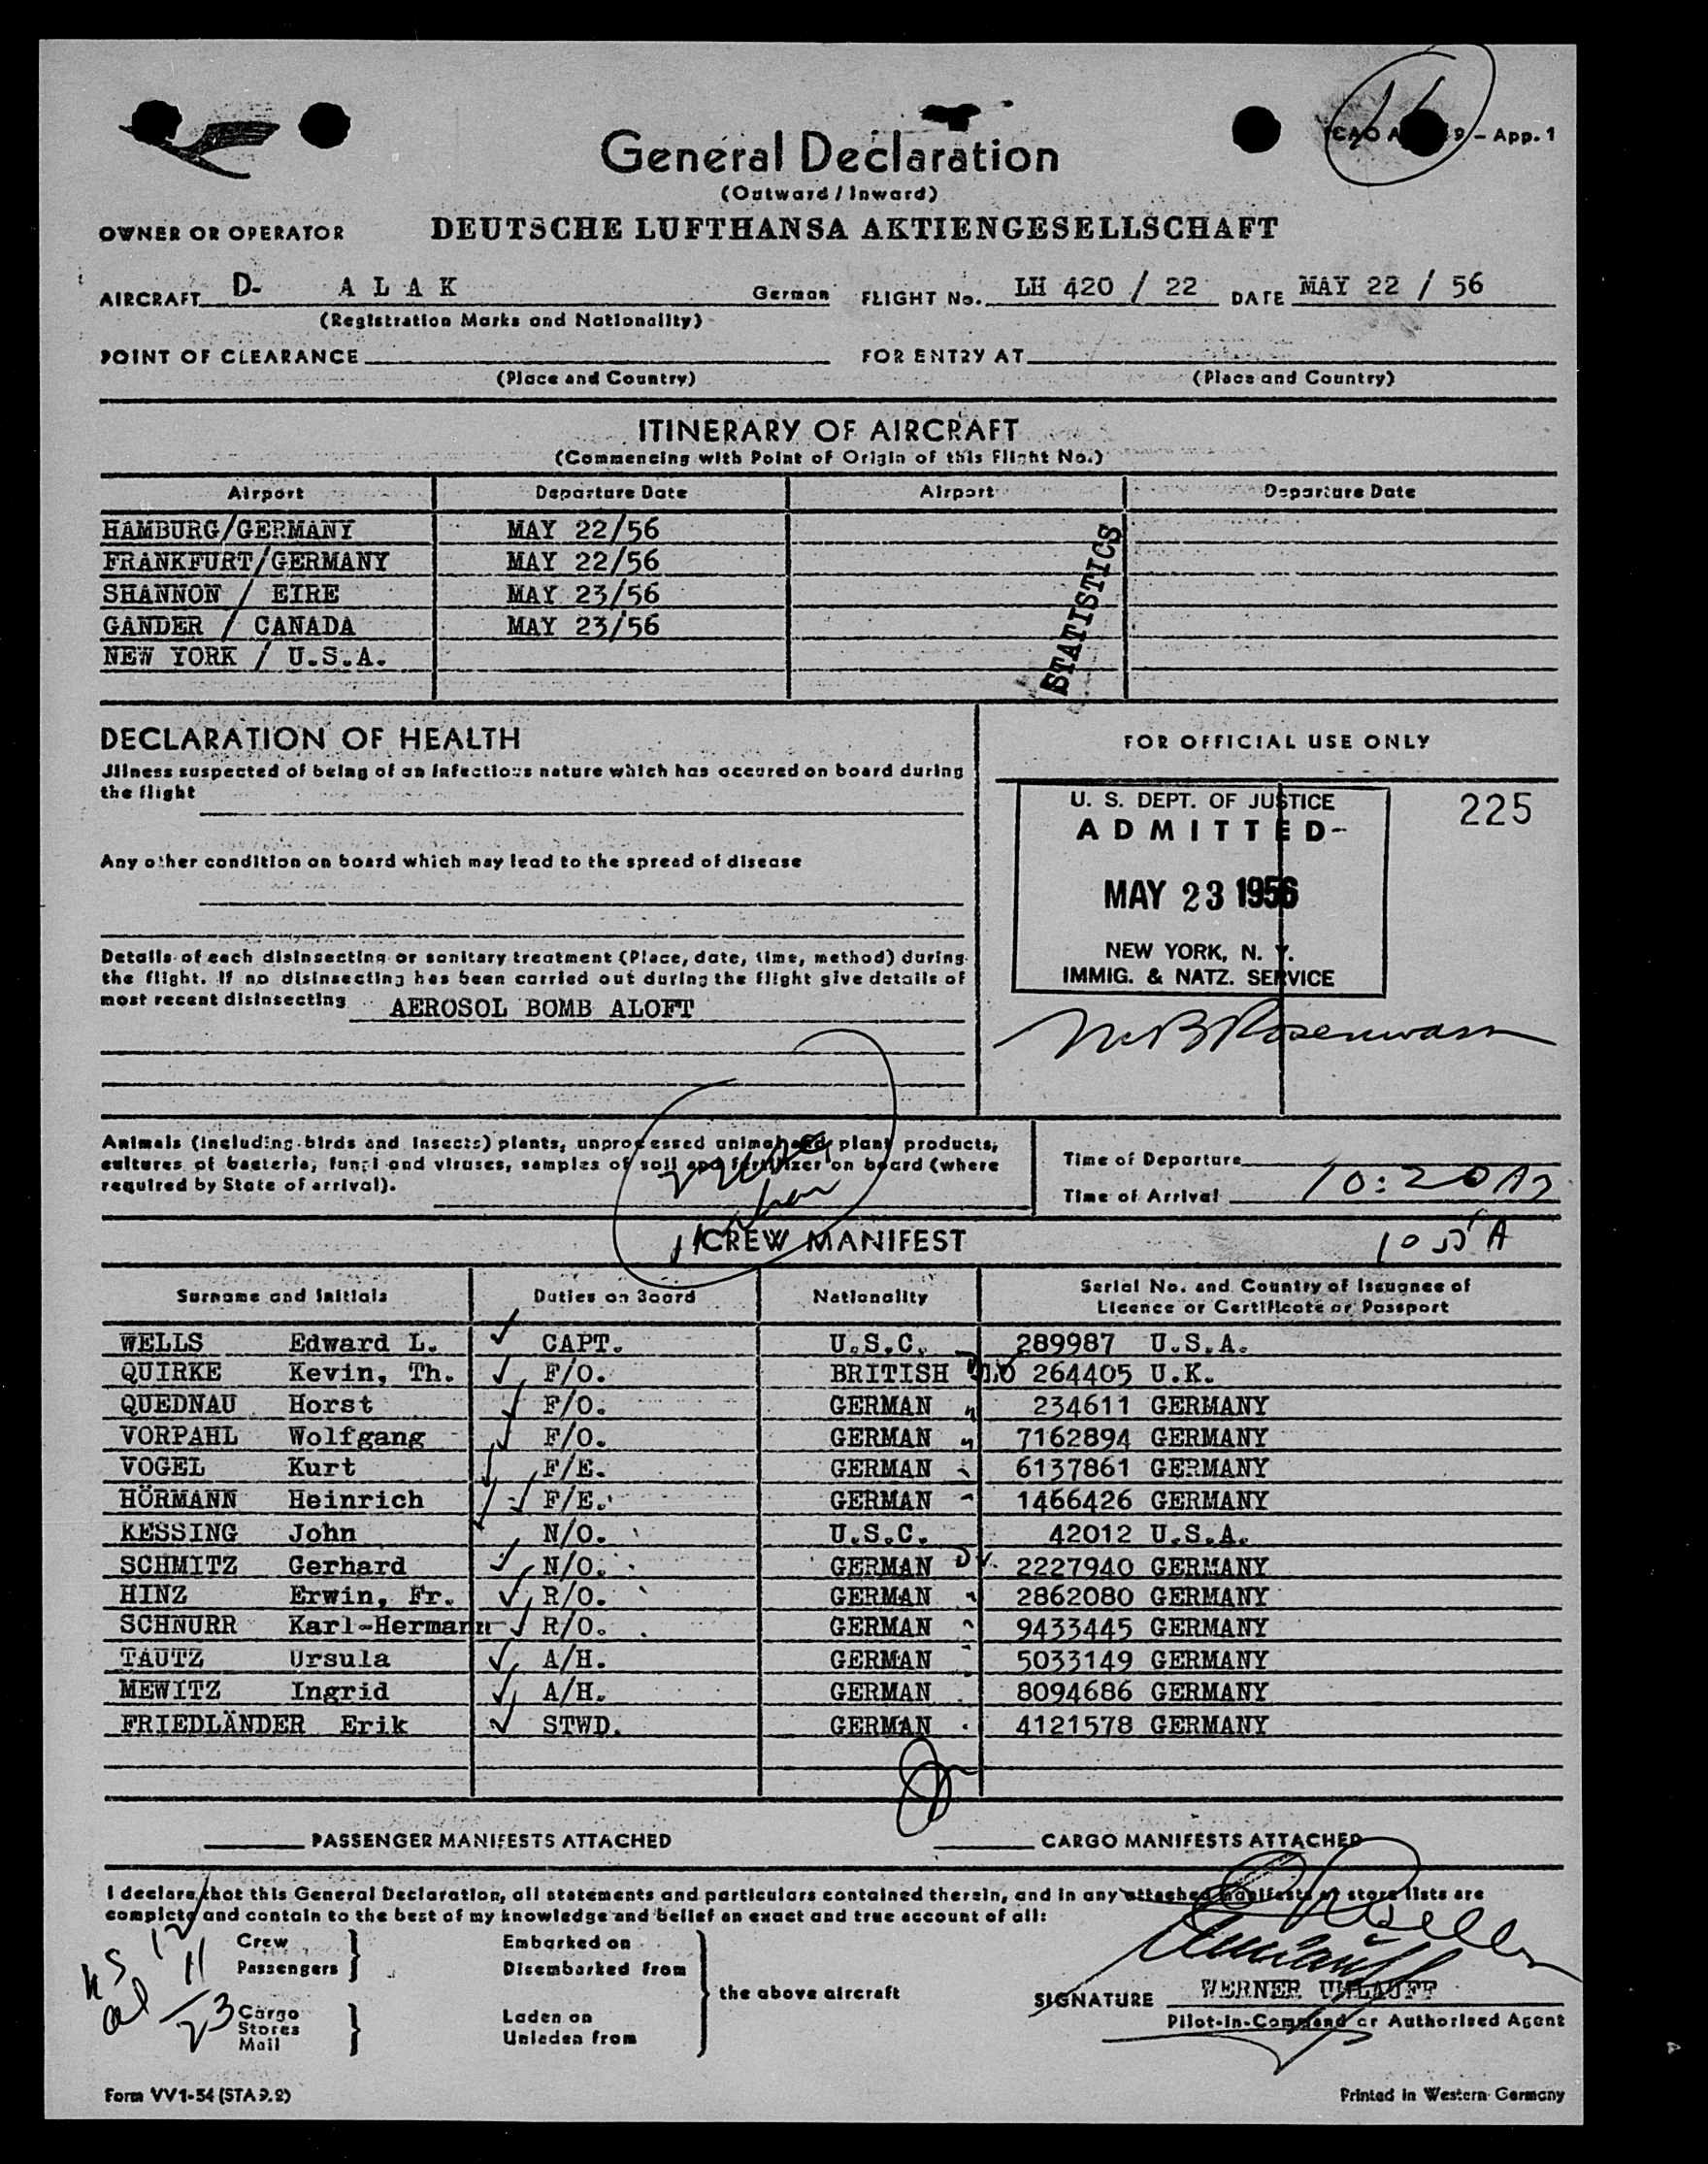 16
ICAO A 9 - App. 1
General Declaration
(Outward / Inward)
OWNER OR OPERATOR DEUTSCHE LUFTHANSA AKTIENGESELLSCHAFT
AIRCRAFT D- A L A K German FLIGHT No. LH 420 / 22 DATE MAY 22 / 56
(Registration Marks and Nationality)
POINT OF CLEARANCE FOR ENTRY AT
(Place and Country) (Place and Country)
ITINERARY OF AIRCRAFT
(Commencing with Point of Origin of this Flight No.)
Airport Departure Date Airport Departure Date
HAMBURG/GERMANY MAY 22/56
FRANKFURT/GERMANY MAY 22/56
SHANNON / EIRE MAY 23/56
GANDER / CANADA MAY 23/56
NEW YORK / U.S.A.
STATISTICS
DECLARATION OF HEALTH
Jllness suspected of being of an infectious nature which has occured on board during
the flight
Any other condition on board which may lead to the spread of disease
Details of each disinsecting or sanitary treatment (Place, date, time, method) during
the flight. If no disinsecting has been carried out during the flight give details of
most recent disinsecting AEROSOL BOMB ALOFT
FOR OFFICIAL USE ONLY
U. S. DEPT. OF JUSTICE
ADMITTED-
225
MAY 23 1956
NEW YORK, N. Y.
IMMIG. & NATZ. SERVICE
Animals (including birds and insects) plants, unprocessed animal and plant products,
cultures of bacteria, fungi and viruses, samples of soil and fertilizer on board (where
required by State of arrival).
Time of Departure
Time of Arrival 10:20 A
CREW MANIFEST
10 55 A
Surname and Initials Duties on Board Nationality Serial No. and Country of Issuance of
Licence or Certificate or Passport
WELLS Edward L. CAPT. U.S.C. 289987 U.S.A.
QUIRKE Kevin, Th. F/O. BRITISH 264405 U.K.
QUEDNAU Horst F/O. GERMAN 234611 GERMANY
VORPAHL Wolfgang F/O. GERMAN 7162894 GERMANY
VOGEL Kurt F/E. GERMAN 6137861 GERMANY
HÖRMANN Heinrich F/E. GERMAN 1466426 GERMANY
KESSING John N/O. U.S.C. 42012 U.S.A.
SCHMITZ Gerhard N/O. GERMAN 2227940 GERMANY
HINZ Erwin, Fr. R/O. GERMAN 2862080 GERMANY
SCHNURR Karl-Hermann R/O. GERMAN 9433445 GERMANY
TAUTZ Ursula A/H. GERMAN 5033149 GERMANY
MEWITZ Ingrid A/H. GERMAN 8094686 GERMANY
FRIEDLÄNDER Erik STWD. GERMAN 4121578 GERMANY
PASSENGER MANIFESTS ATTACHED CARGO MANIFESTS ATTACHED
I declare that this General Declaration, all statements and particulars contained therein, and in any attached manifests or store lists are
complete and contain to the best of my knowledge and belief an exact and true account of all:
Crew Embarked on
Passengers Disembarked from
the above aircraft
Cargo Laden on
Stores Unladen from
Mail
12
11
23
SIGNATURE WERNER UMLAUFF
Pilot-in-Command or Authorised Agent
Form VV1-54 (STA 9.2) Printed in Western Germany